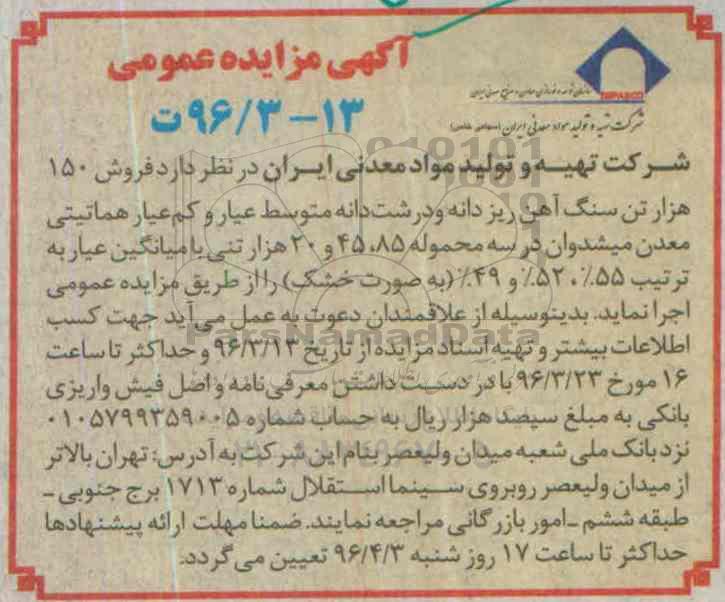 آگهی مزایده عمومی
۱۳-۹۶/۳ت
IMPASCO
شرکت تهیه و تولید مواد معدنی ایران (سهامی خاص)
شرکت تهیه و تولید مواد معدنی ایران در نظر دارد فروش ۱۵۰
هزار تن سنگ آهن ریز دانه ودرشت‌دانه متوسط عیار و کم‌عیار هماتیتی
معدن میشدوان در سه محموله ۸۵، ۴۵ و ۲۰ هزار تنی با میانگین عیار به
ترتیب ۵۵٪، ۵۲٪ و ۴۹٪ (به صورت خشک) را از طریق مزایده عمومی
اجرا نماید. بدینوسیله از علاقمندان دعوت به عمل می‌آید جهت کسب
اطلاعات بیشتر و تهیه اسناد مزایده از تاریخ ۹۶/۳/۱۳ و حداکثر تا ساعت
۱۶ مورخ ۹۶/۳/۲۳ با در دست داشتن معرفی‌نامه و اصل فیش واریزی
بانکی به مبلغ سیصد هزار ریال به حساب شماره ۰۱۰۵۷۹۹۳۵۹۰۰۵
نزد بانک ملی شعبه میدان ولیعصر بنام این شرکت به آدرس: تهران بالاتر
از میدان ولیعصر روبروی سینما استقلال شماره ۱۷۱۳ برج جنوبی -
طبقه ششم - امور بازرگانی مراجعه نمایند. ضمنا مهلت ارائه پیشنهادها
حداکثر تا ساعت ۱۷ روز شنبه ۹۶/۴/۳ تعیین می گردد.
ParsNamadData